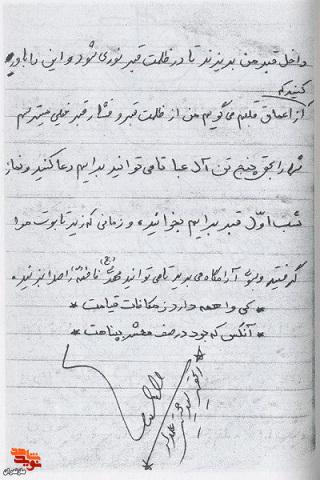 داخل قبر من بریزند تا در ظلمت قبر نوری شود و این را باور
کنید که
از اعماق قلبم می‌گویم من از ظلمت قبر و فشار قبر خیلی میترسم
شما را بحق پنج تن آل عبا تا می توانید برایم دعا کنید و نماز
شب اوّل قبر برایم بخوانید، و زمانی که زیر تابوت مرا
گرفتید و بسوی آرامگاه می برید تا می توانید مهدی (عج) فاطمه را صدا بزنید.
* کی واهمه دارد ز مکافات قیامت *
* آنکس که بود در صف محشر به پناهت *